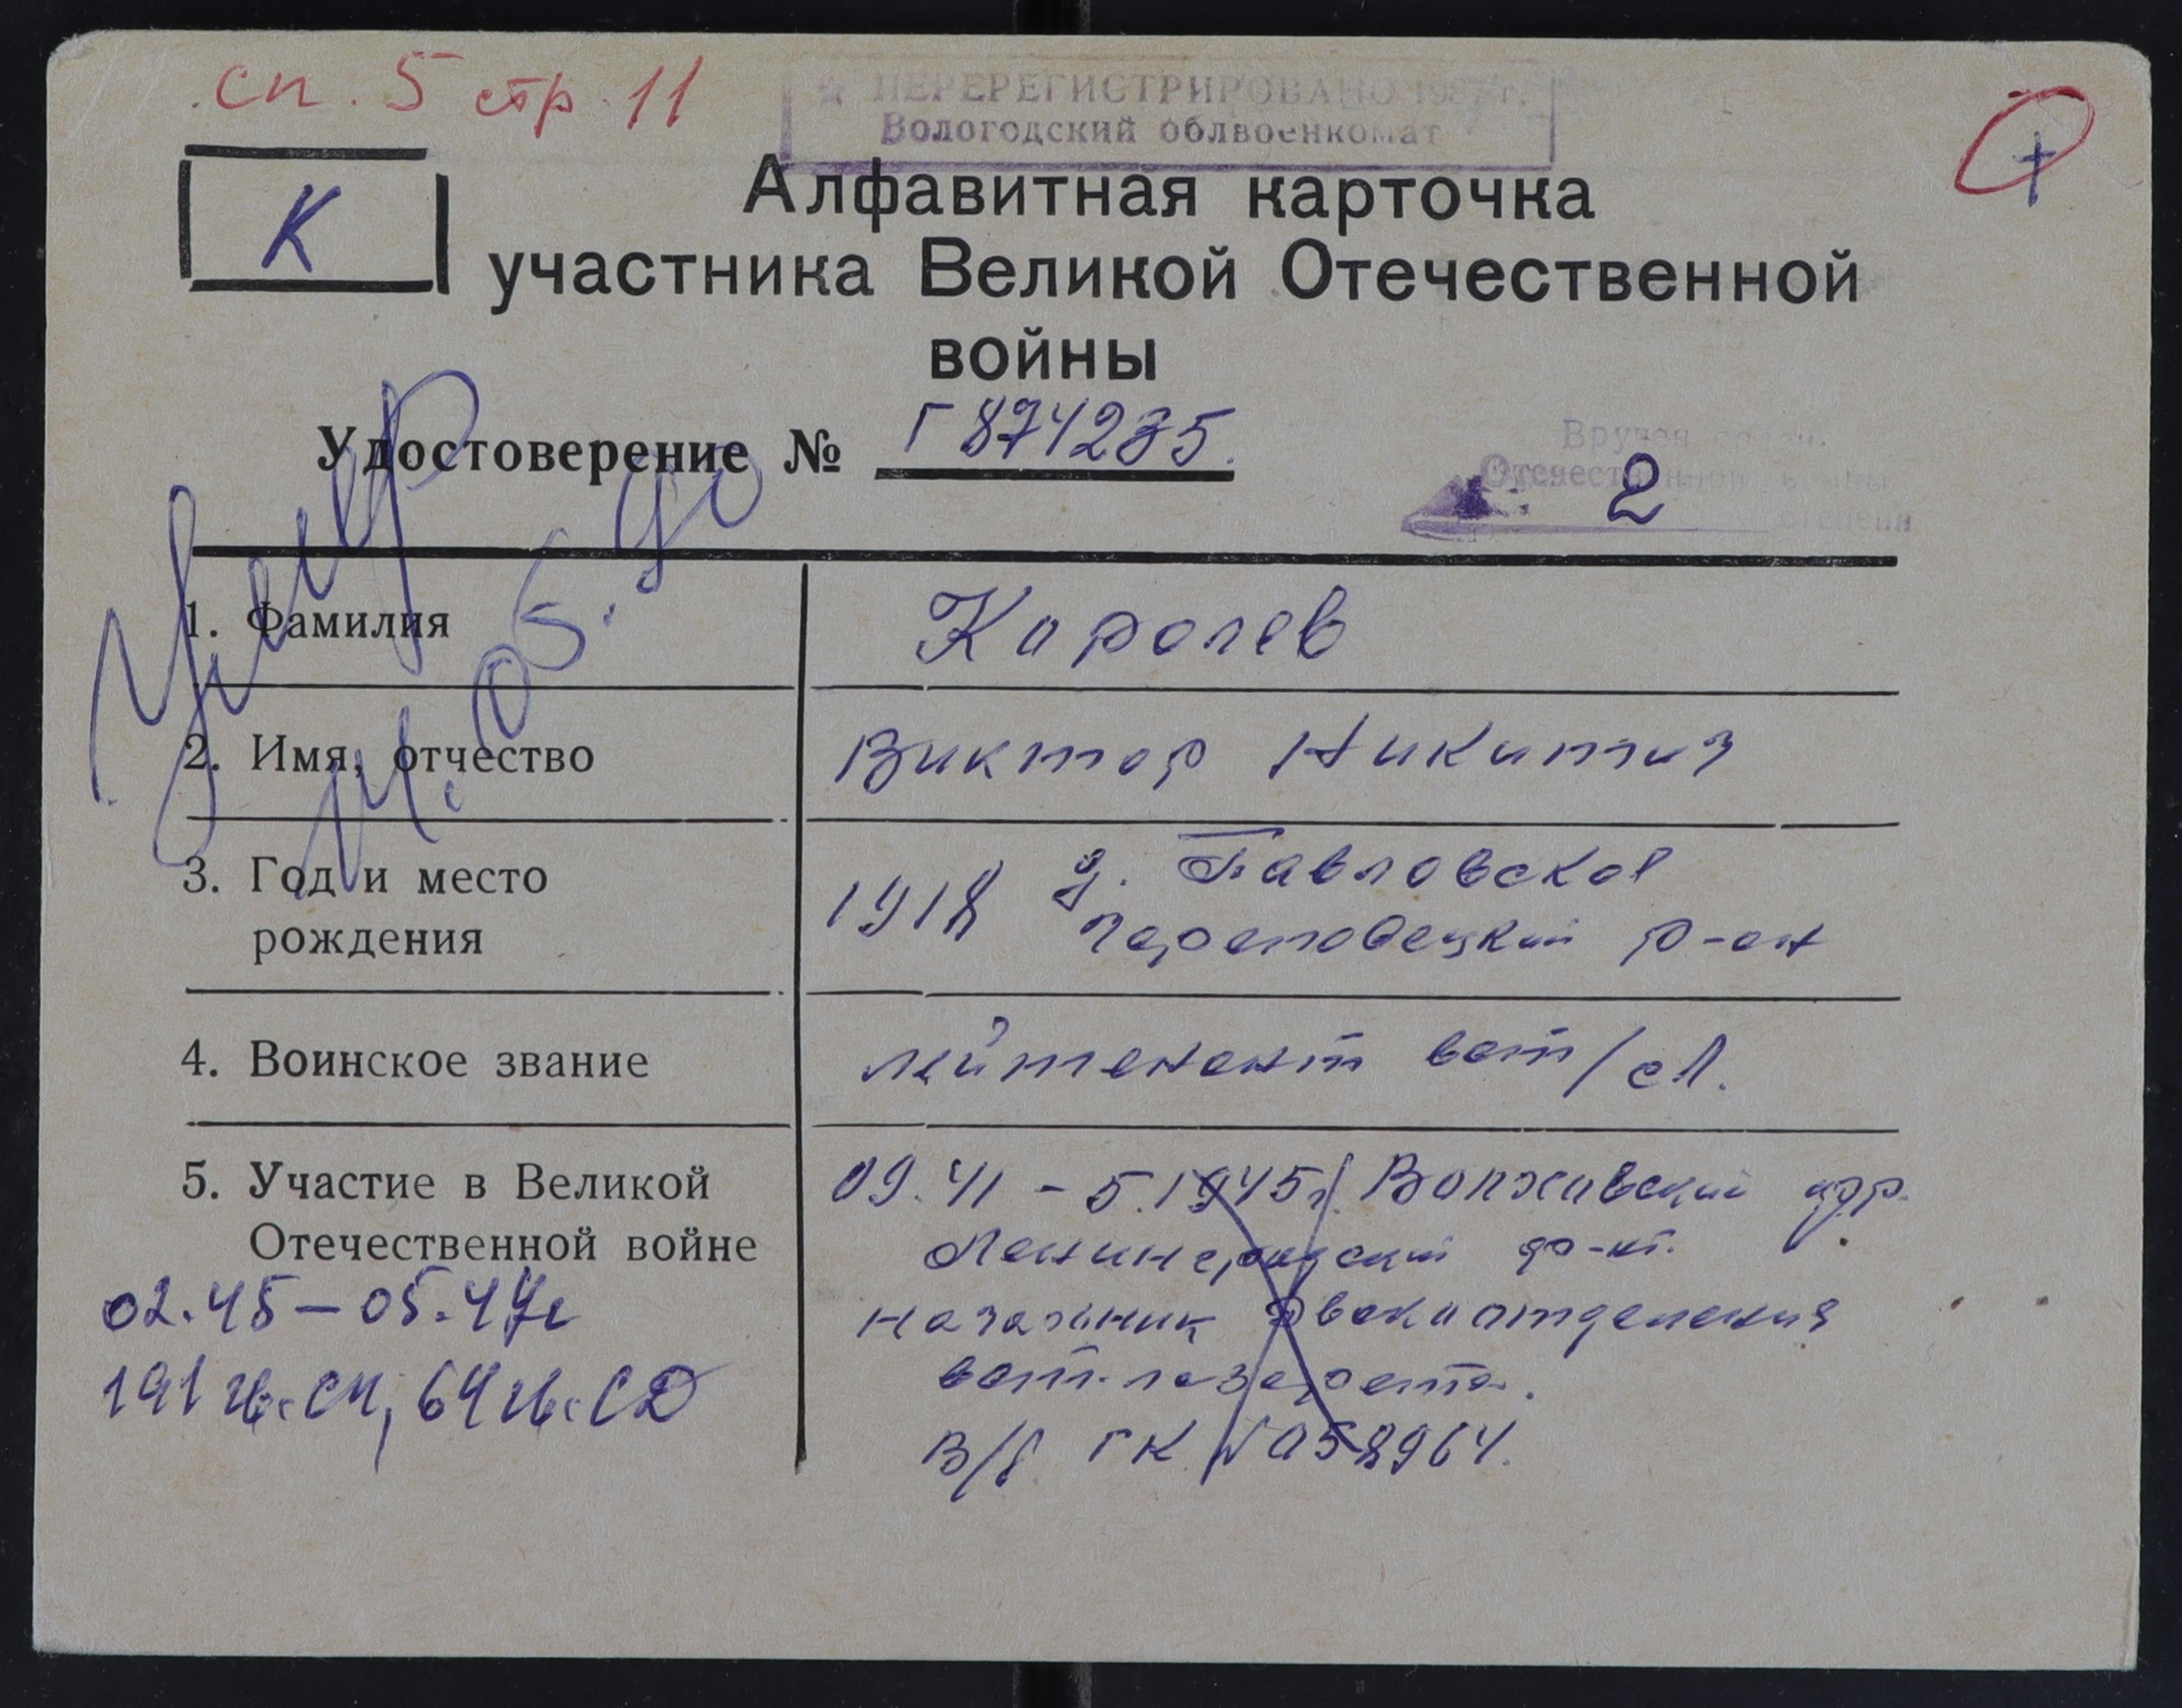 сп. 5 стр. 11
ПЕРЕРЕГИСТРИРОВАНО
Вологодский облвоенкомат
К
Алфавитная карточка
участника Великой Отечественной
войны
Удостоверение № Г 874235.
Вручен
Отечественной войны
2 степени
Умер
05.90
1. Фамилия Королев
2. Имя, отчество Виктор Никитич
3. Год и место 1918 д. Павловское
рождения Череповецкий р-он
4. Воинское звание лейтенант вет/сл.
5. Участие в Великой 09.41 - 5.1945г. Волховский фр.
Отечественной войне Ленинградский фр-нт.
02.45 – 05.45г начальник эвакоотделения
191 гв. СП, 64 гв. СД вет. лазарета.
В/б ГК № 058964.